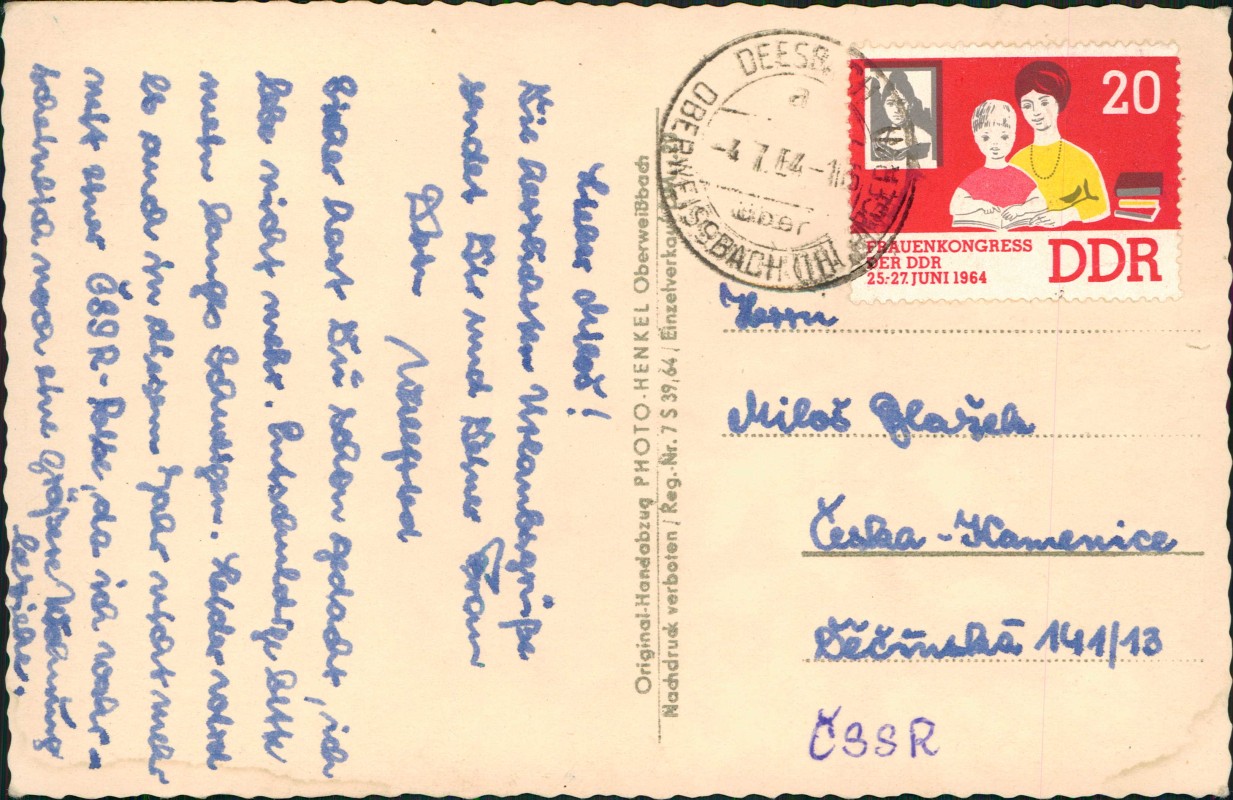 Lieber Miloš!
Die herzlichsten Urlaubsgrüße
sendet Dir und Deiner Frau
Dein
Sicher hast Du schon gedacht, ich
lebe nicht mehr. Entschuldige bitte
mein langes Schweigen. Leider wird
es auch in diesem Jahr nichts mehr
mit einer ČSSR-Reise, da ich wahr-
scheinlich noch eine größere Wohnung
beziehe.
Original-Handabzug PHOTO-HENKEL Oberweißbach
Nachdruck verboten / Reg.-Nr. 7 S 39/64 / Einzelverkauf
a
-4.7.64-
über
OBERWEISSBACH
20
FRAUENKONGRESS
DER DDR
25.-27. JUNI 1964
DDR
Herrn
Miloš Blažek
Česka-Kamenice
Děčínská 141/13
ČSSR